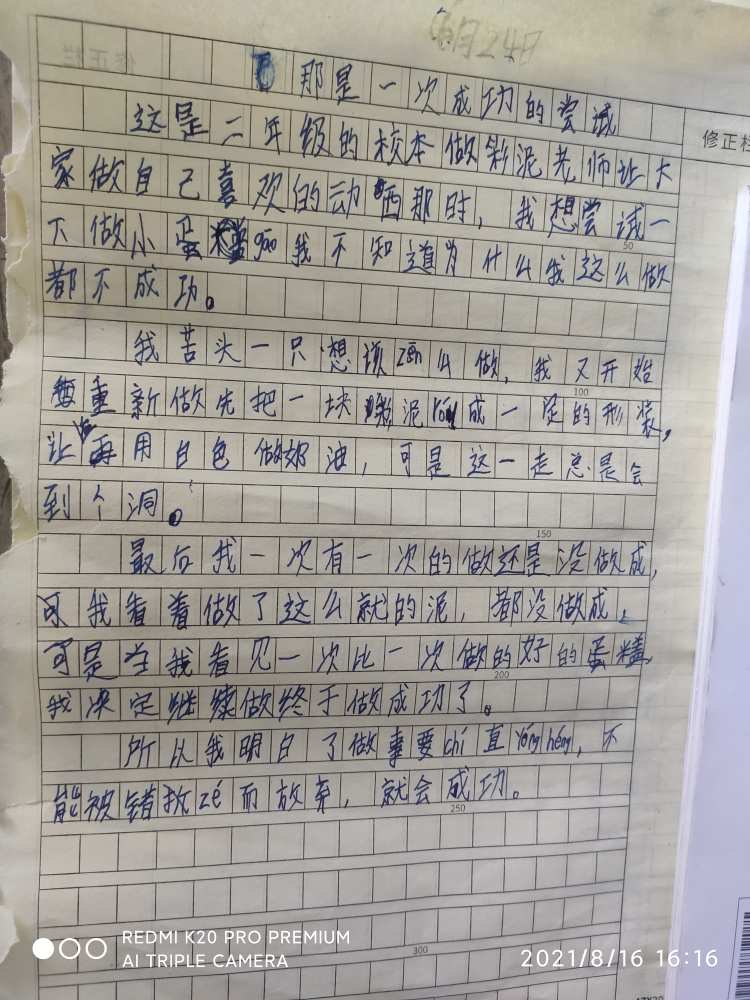 6月24日
修正栏
那是一次成功的尝试
修正栏
这是二年级的校本做彩泥老师让大
家做自己喜欢的动西那时，我想尝试一
下做小蛋糕gāo我不知道为什么我这么做
50
都不成功。
我苦头一只想该zěn么做，我又开始
100
重新做先把一块彩泥róu成一定的形装，
让再用白色做奶油，可是这一走总是会
到个洞。
150
最后我一次有一次的做还是没做成，
可我看着做了这么就的泥，都没做成，
可是当我看见一次比一次做的好的蛋糕
200
我决定继续做终于做成功了。
所以我明白了做事要chí直yǒng héng，不
能被错折zé而放弃，就会成功。
250
300
REDMI K20 PRO PREMIUM
AI TRIPLE CAMERA
2021/8/16 16:16